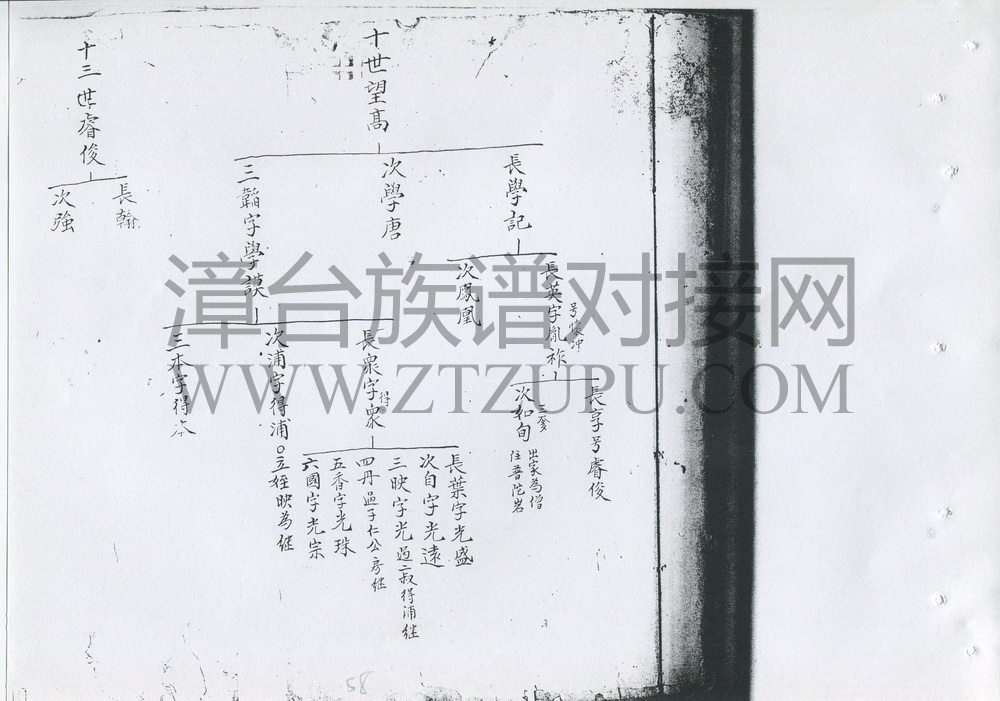 十世望高
長學記
長英字胤祚
号懷冲
長享号睿俊
次和旬
三爹
出家為僧
住普陀岩
次鳳凰
次學唐
三韜字學謨
長衆字得衆
長葉字光盛
次自字光遠
三映字光過二叔得浦継
四丹過子仁公房継
五香字光珠
六國字光宗
次浦字得浦○立姪映為継
三本字得本
十三世睿俊
長翰
次強
58
漳台族谱对接网
WWW.ZTZUPU.COM